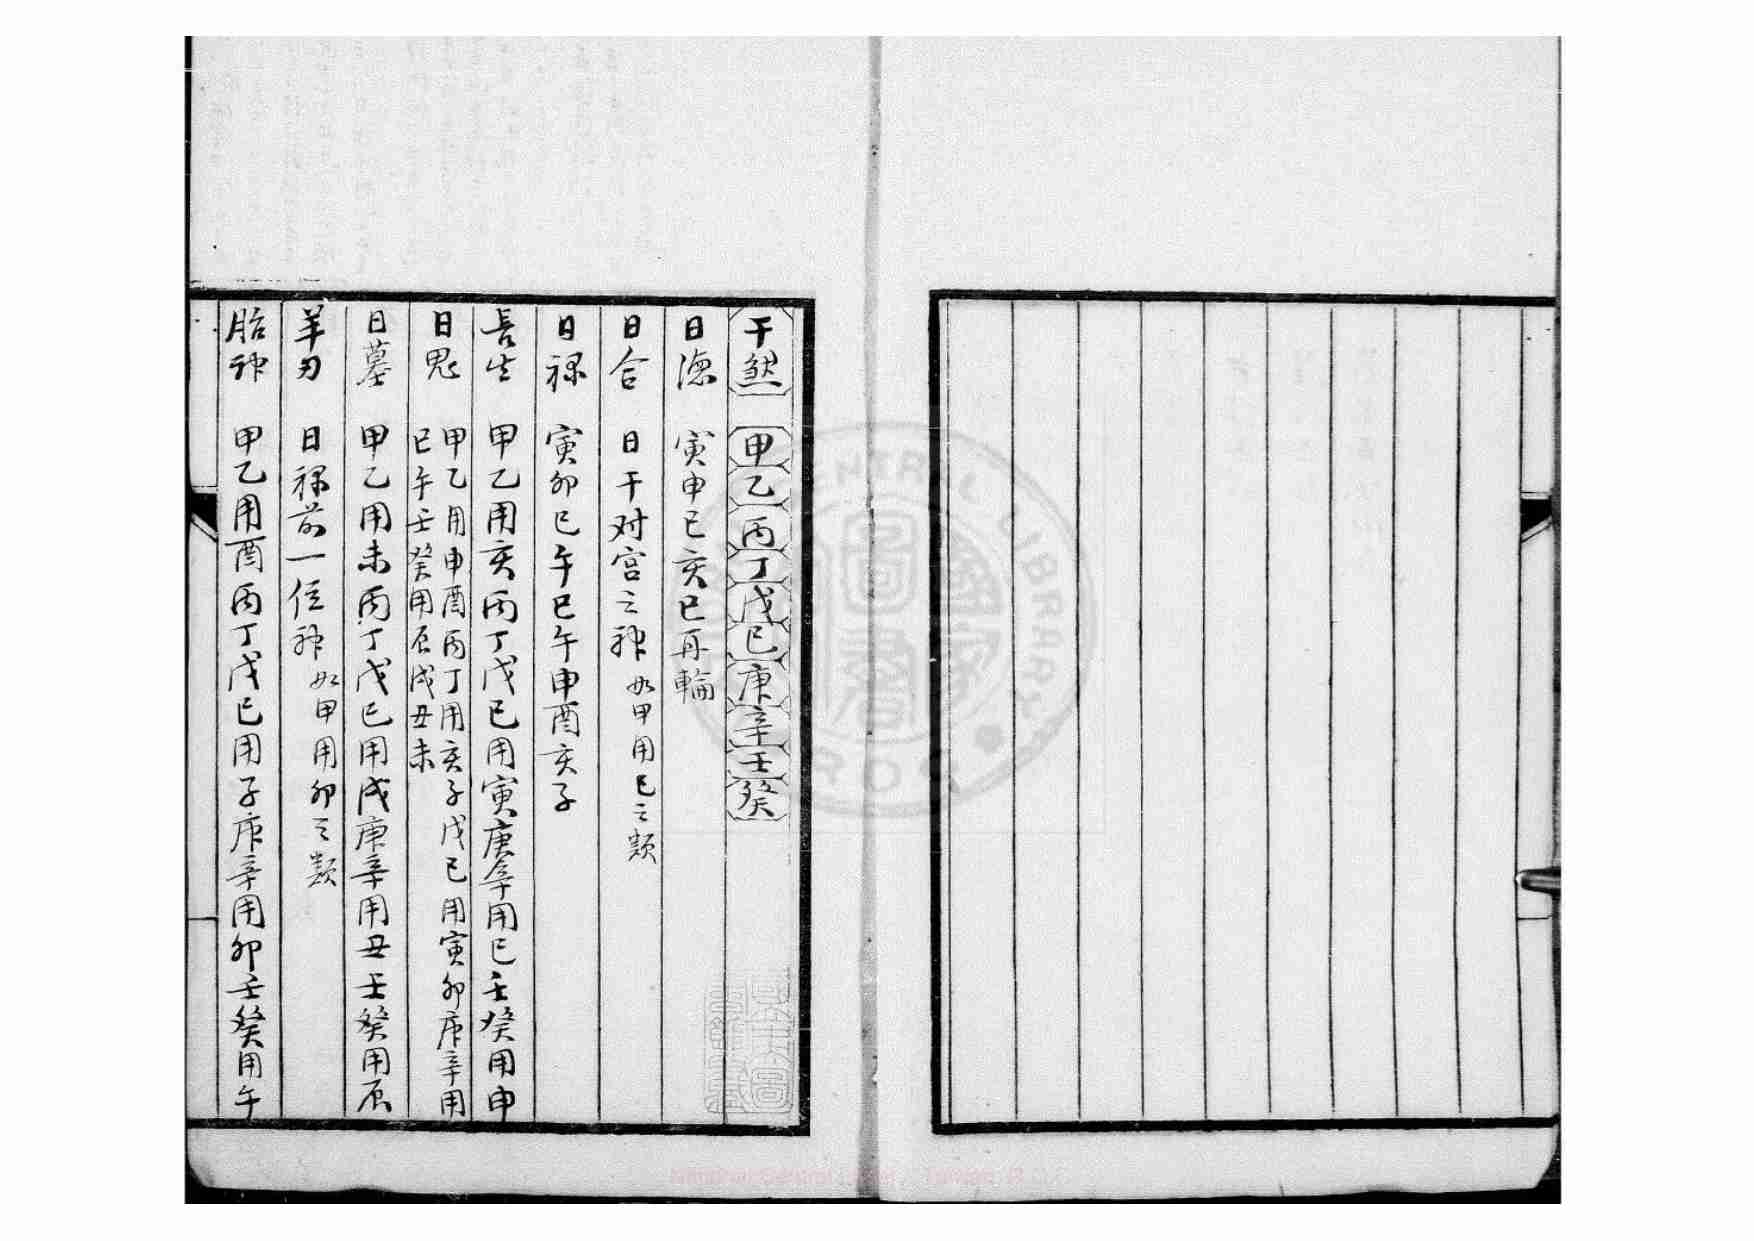 干煞 甲乙丙丁戊巳庚辛壬癸
日德 寅申巳亥巳再輪
日合 日干对宫之神 如甲用巳之類
日禄 寅卯巳午巳午申酉亥子
長生 甲乙用亥丙丁戊巳用寅庚辛用巳壬癸用申
日鬼 甲乙用申酉丙丁用亥子戊巳用寅卯庚辛用
巳午壬癸用辰戌丑未
日墓 甲乙用未丙丁戊巳用戌庚辛用丑壬癸用辰
羊刃 日禄前一位神 如甲用卯之類
胎神 甲乙用酉丙丁戊巳用子庚辛用卯壬癸用午